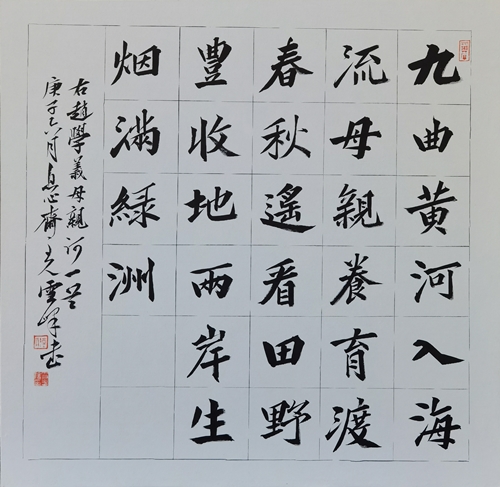 九曲黄河入海
流母親養育渡
春秋遙看田野
豐收地兩岸生
烟滿綠洲
右趙學義母親河一首
庚子六月息心齋王雲峰書